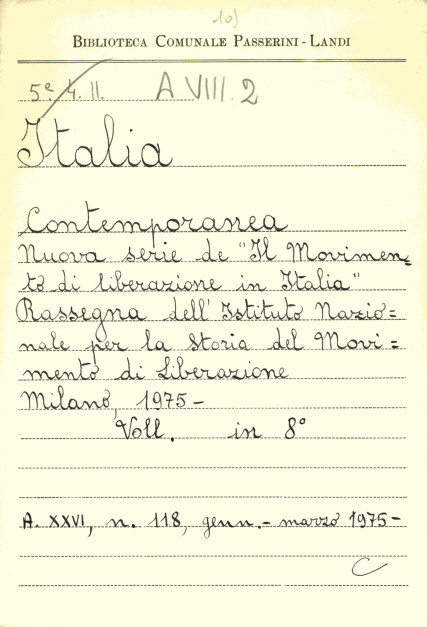 10)
BIBLIOTECA COMUNALE PASSERINI - LANDI
5e. 4. II. A VIII. 2
Italia
Contemporanea
Nuova serie de "Il Movimen=
to di liberazione in Italia"
Rassegna dell'Istituto Nazio=
nale per la Storia del Movi=
mento di Liberazione
Milano, 1975-
Voll. in 8°
A. XXVI, n. 118, genn.- marzo 1975-
C